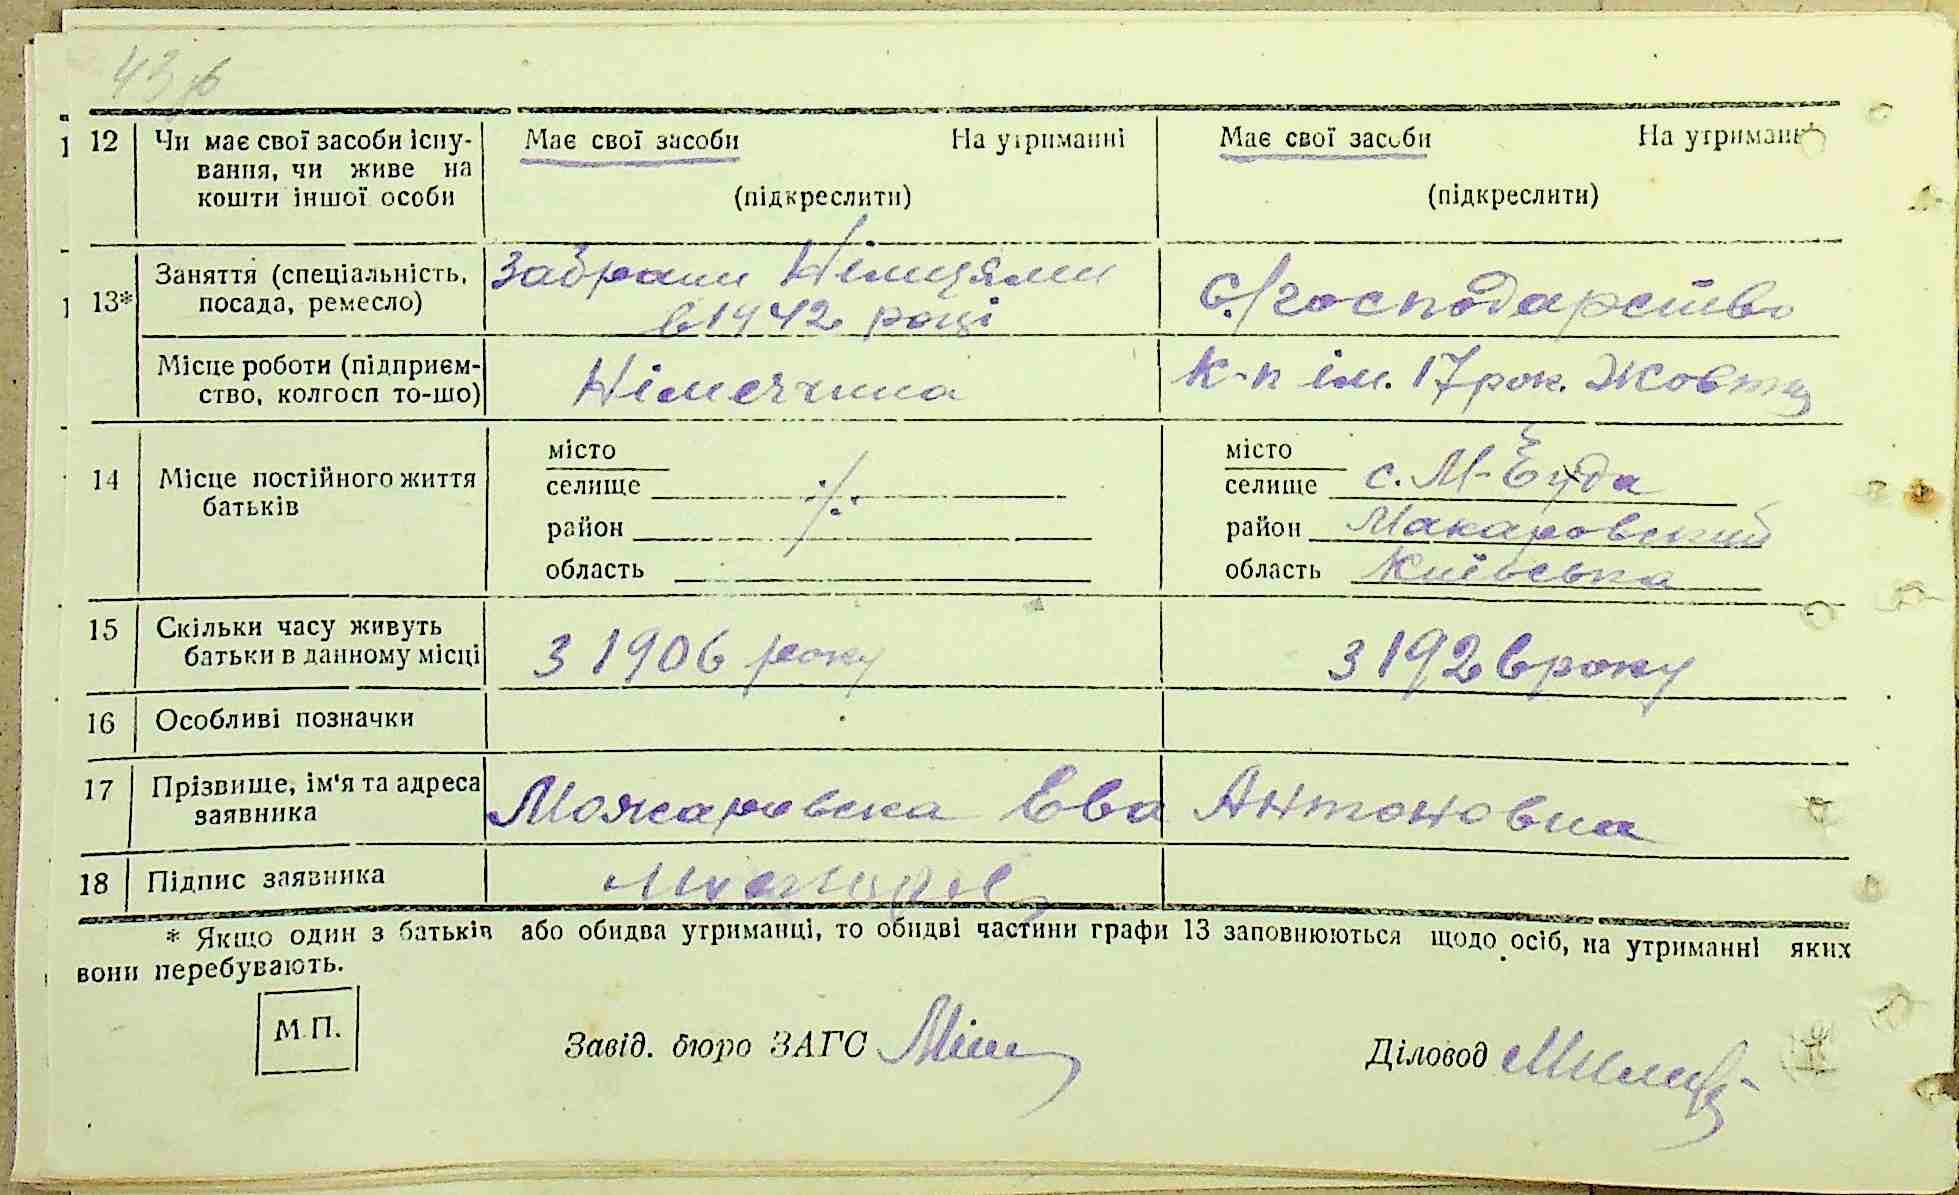 43
12 Чи має свої засоби існу- Має свої засоби На утриманні Має свої засоби На утриманні
вання, чи живе на
кошти іншої особи (підкреслити) (підкреслити)
13* Заняття (спеціальність, забрани Німцями с./господарство
посада, ремесло) в 1942 році
Місце роботи (підприєм- Німеччина к-п ім. 17 рок. Жовтня
ство, колгосп то-що)
14 Місце постійного життя місто місто
батьків селище ./. селище с. М-
район район Макаровский
область область Київська
15 Скільки часу живуть з 1906 року з 1926 року
батьки в данному місці
16 Особливі позначки
17 Прізвище, ім'я та адреса Можаровска Ева Антоновна
заявника
18 Підпис заявника
* Якщо один з батьків або обидва утриманці, то обидві частини графи 13 заповнюються щодо осіб, на утриманні яких
вони перебувають.
М.П. Завід. бюро ЗАГС Діловод